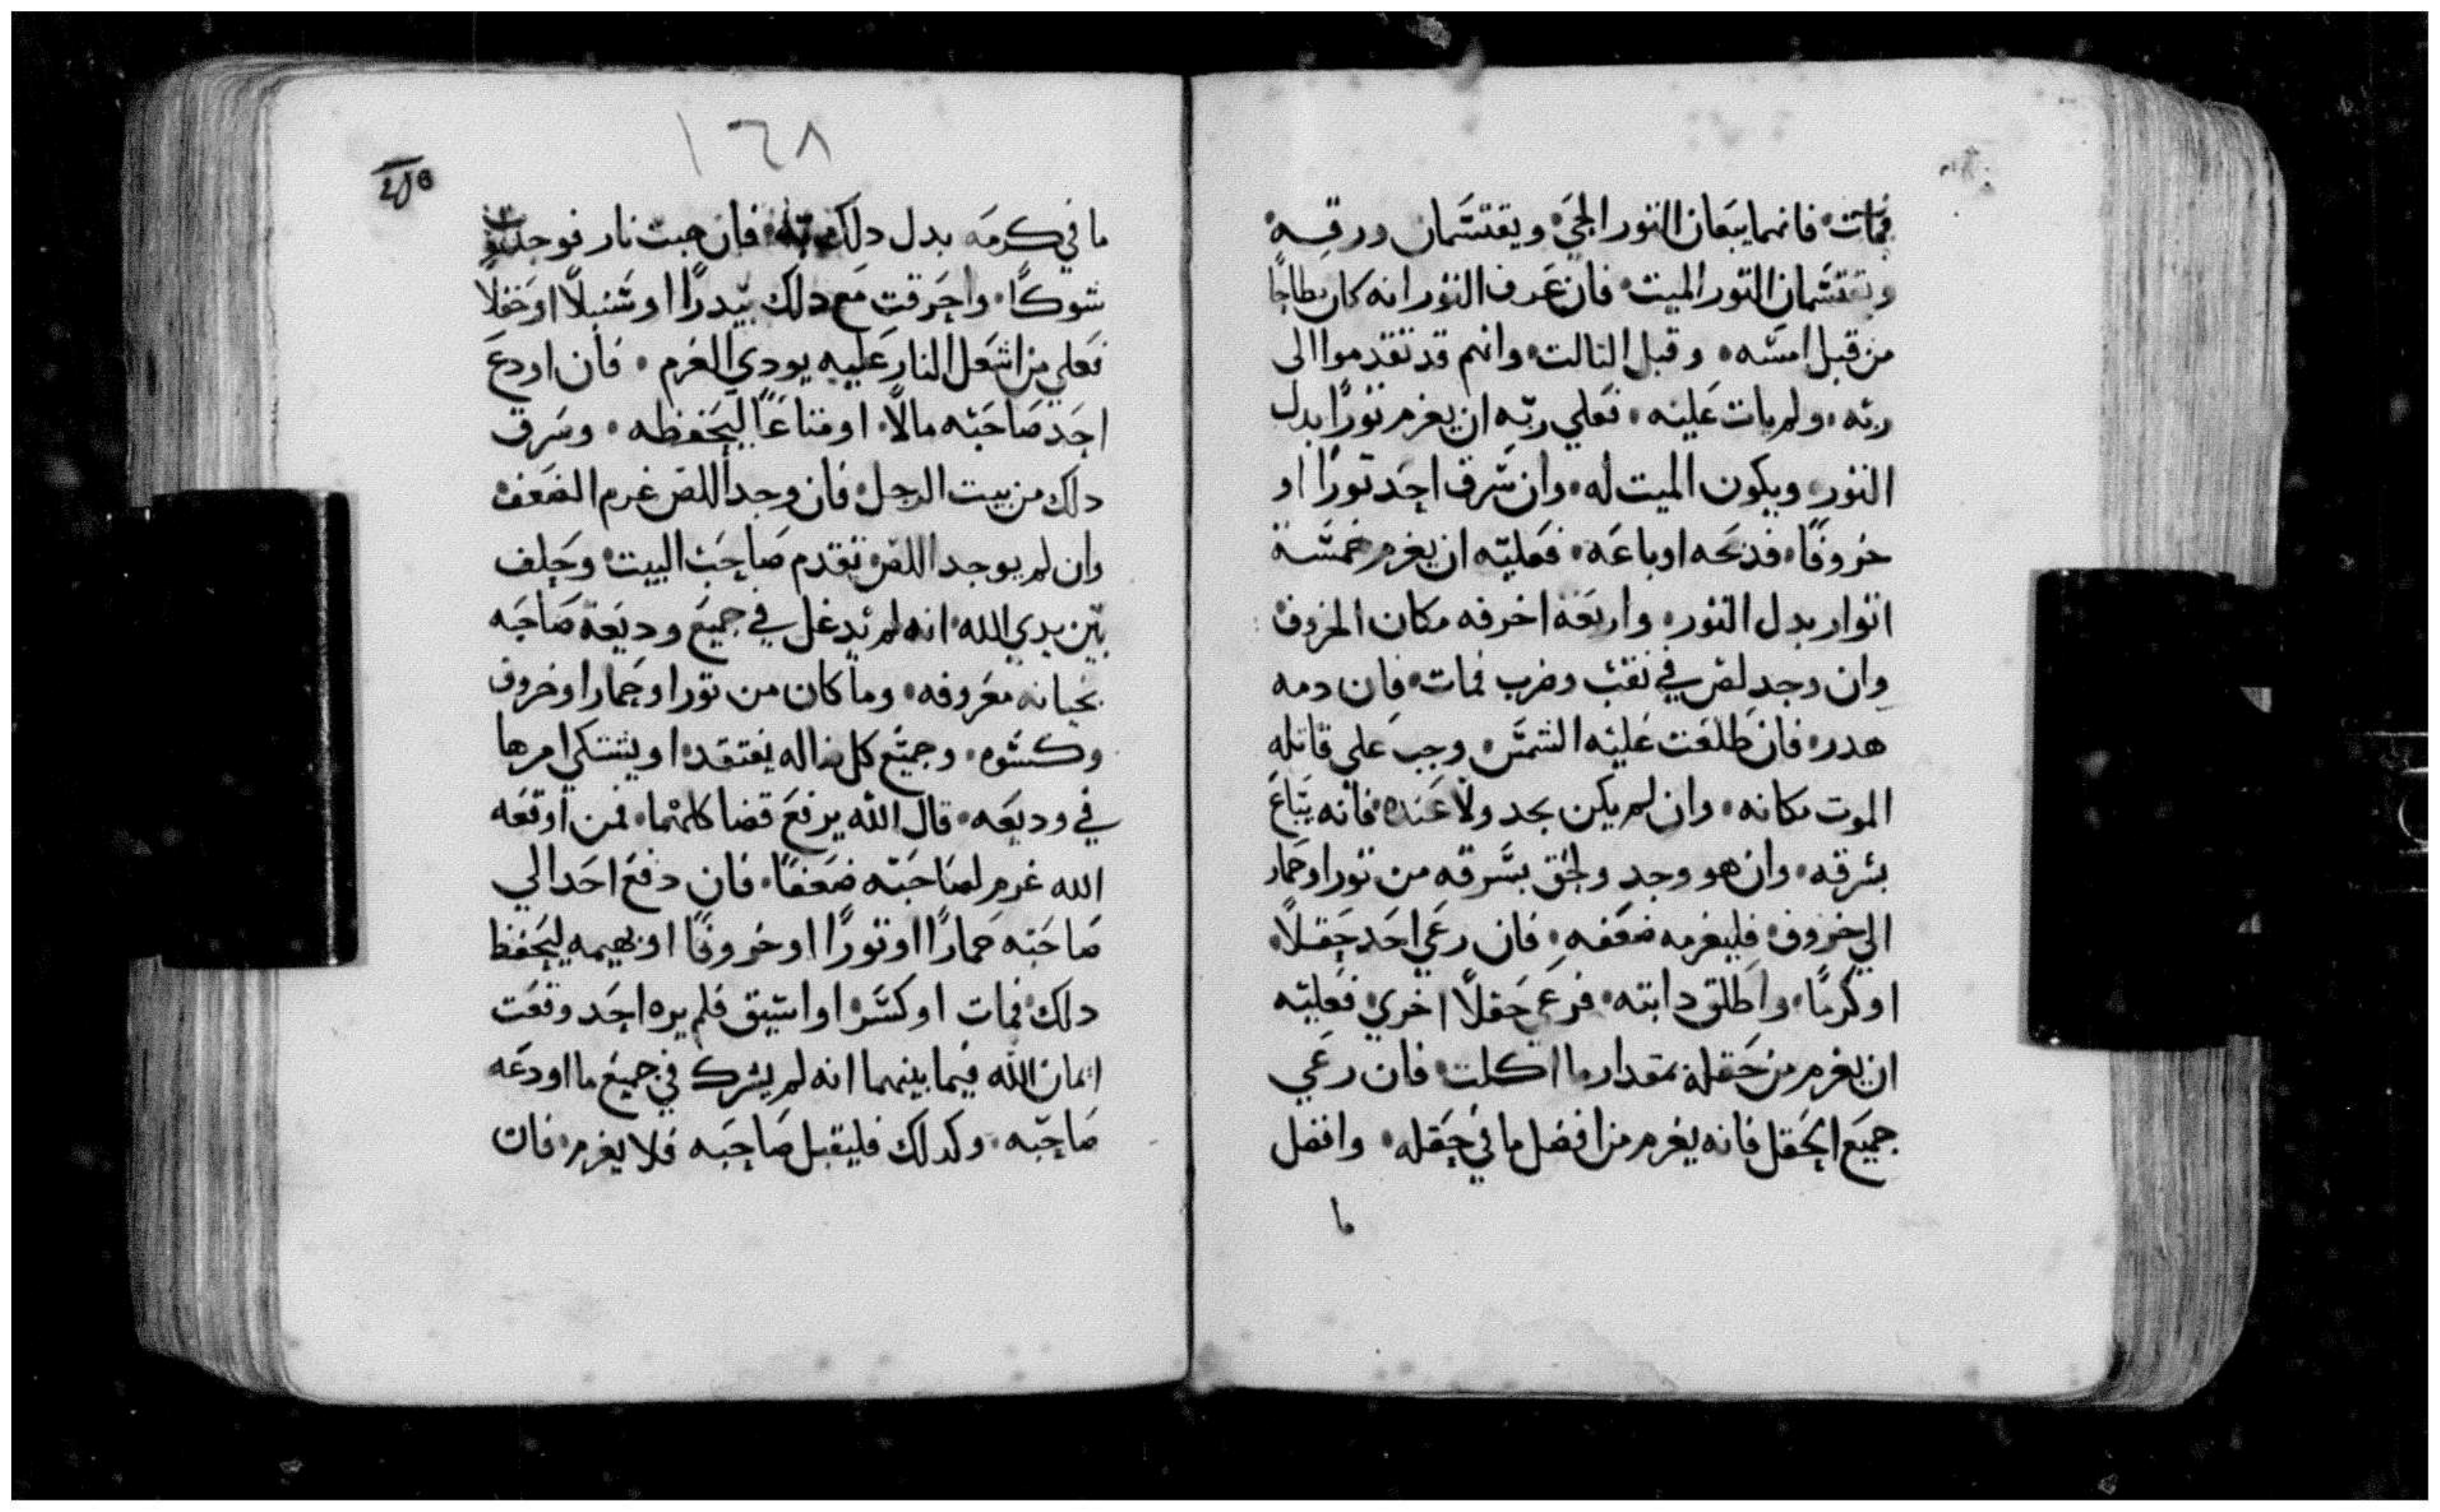 فمات فانهما يبيعان التور الحي ويقتسمان ورقه
ويقتسمان التور الميت فان عرف التور انه كان بطاحا
من قبل امسه وقبل التالت وانهم قد تقدموا الى
ربه ولم يات عليه فعلي ربه ان يغرم تورًا بدل
التور ويكون الميت له وان سرق احد تورًا او
خروفًا فدبحه او باعه فعليه ان يغرم خمسة
اتوار بدل التور واربعة اخرفه مكان الخروف
وان وجد لص في نقب وضرب فمات فان دمه
هدر فان طلعت عليه الشمس وجب على قاتله
الموت مكانه وان لم يكن يجد ولا عنده فانه يباع
بسرقه وان هو وجد ولحق بسرقه من تور او حمار
الي خروف فليغرمه ضعفه فان رعي احد حقلًا
او كرمًا واطلق دابته فرعي حقلًا اخري فعليه
ان يغرم من حقله بمقدار ما اكلت فان رعي
جميع الحقل فانه يغرم من افضل ما في حقله وافضل
ما
١٦٨
ما في كرمه بدل دلك فان هبت نار فوجدت
شوكًا واحرقت مع دلك بيدرًا او سنبلًا او حقلا
فعلي من اشعل النار عليه يودي الغرم فان اودع
احد صاحبه مالًا او متاعًا ليحفظه وسرق
دلك من بيت الرجل فان وجد اللص غرم الضعف
وان لم يوجد اللص تقدم صاحب البيت وحلف
بين يدي الله انه لم يدغل في جميع وديعة صاحبه
بخيانه معروفه وما كان من تور او حمار او خروف
وكسوه وجميع كل ضاله يفتقد او يشتكي امرها
في وديعه قال الله يرفع قضا كلاهما فمن اوقعه
الله غرم لصاحبه ضعفًا فان دفع احد الي
صاحبه حمارًا او تورًا او خروفًا او بهيمه ليحفظ
دلك فمات او كسر او استيق فلم يره احد وقعت
ايمان الله فيما بينهما انه لم يشرك في جميع ما اودعه
صاحبه وكدلك فليقبل صاحبه فلا يغرم فان